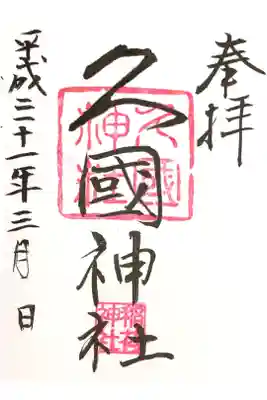 奉拝
久國神社
久國神社
稲荷神社
平成二十一年三月 日